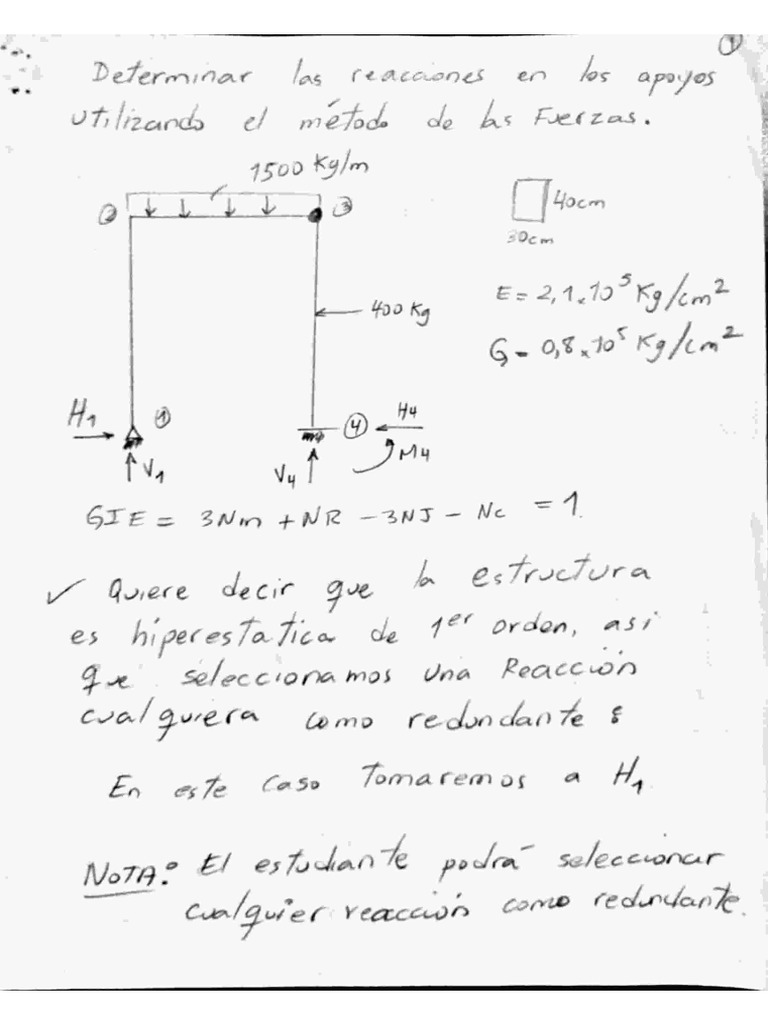 ①
Determinar las reacciones en los apoyos
utilizando el método de las Fuerzas.
1500 Kg/m
② ③
40cm
30cm
E = 2,1 x 10⁵ Kg/cm²
400 Kg
G = 0,8 x 10⁵ Kg/cm²
H1 ① ④ H4
V1 V4 M4
GIE = 3Nm + NR - 3NJ - Nc = 1.
✓ Quiere decir que la estructura
es hiperestatica de 1er orden, asi
que seleccionamos una Reacción
cualquiera como redundante :
En este caso Tomaremos a H1
NOTA: El estudiante podrá seleccionar
cualquier reacción como redundante.